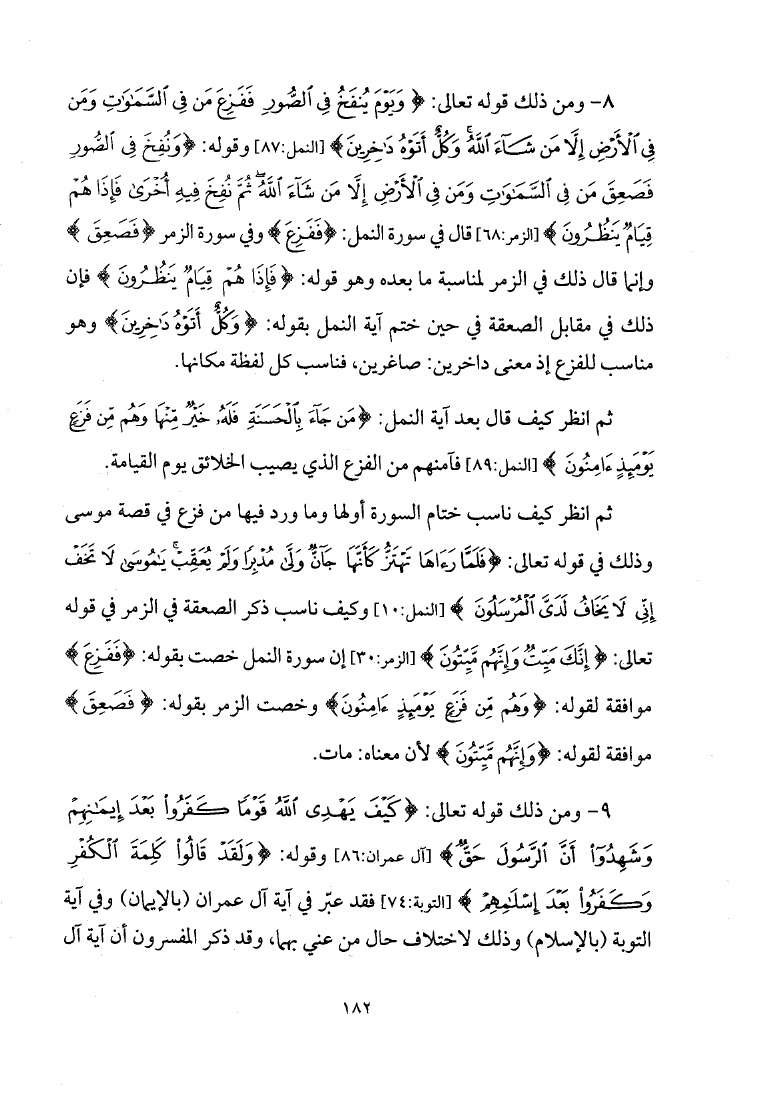 ٨- ومن ذلك قوله تعالى: ﴿ وَيَوْمَ يُنفَخُ فِي ٱلصُّورِ فَفَزِعَ مَن فِي ٱلسَّمَٰوَٰتِ وَمَن
فِي ٱلْأَرْضِ إِلَّا مَن شَآءَ ٱللَّهُ ۚ وَكُلٌّ أَتَوْهُ دَٰخِرِينَ﴾ [النمل:٨٧] وقوله: ﴿وَنُفِخَ فِي ٱلصُّورِ
فَصَعِقَ مَن فِي ٱلسَّمَٰوَٰتِ وَمَن فِي ٱلْأَرْضِ إِلَّا مَن شَآءَ ٱللَّهُ ۖ ثُمَّ نُفِخَ فِيهِ أُخْرَىٰ فَإِذَا هُمْ
قِيَامٌ يَنظُرُونَ ﴾ [الزمر:٦٨] قال في سورة النمل: ﴿فَفَزِعَ﴾ وفي سورة الزمر ﴿فَصَعِقَ ﴾
وإنما قال ذلك في الزمر لمناسبة ما بعده وهو قوله: ﴿ فَإِذَا هُمْ قِيَامٌ يَنظُرُونَ ﴾ فإن
ذلك في مقابل الصعقة في حين ختم آية النمل بقوله: ﴿ وَكُلٌّ أَتَوْهُ دَٰخِرِينَ﴾ وهو
مناسب للفزع إذ معنى داخرين: صاغرين، فناسب كل لفظة مكانها.
ثم انظر كيف قال بعد آية النمل: ﴿مَن جَآءَ بِٱلْحَسَنَةِ فَلَهُۥ خَيْرٌ مِّنْهَا وَهُم مِّن فَزَعٍ
يَوْمَئِذٍ ءَامِنُونَ ﴾ [النمل:٨٩] فآمنهم من الفزع الذي يصيب الخلائق يوم القيامة.
ثم انظر كيف ناسب ختام السورة أولها وما ورد فيها من فزع في قصة موسى
وذلك في قوله تعالى: ﴿فَلَمَّا رَءَاهَا تَهْتَزُّ كَأَنَّهَا جَآنٌّ وَلَّىٰ مُدْبِرًا وَلَمْ يُعَقِّبْ ۚ يَٰمُوسَىٰ لَا تَخَفْ
إِنِّي لَا يَخَافُ لَدَىَّ ٱلْمُرْسَلُونَ ﴾ [النمل:١٠] وكيف ناسب ذكر الصعقة في الزمر في قوله
تعالى: ﴿ إِنَّكَ مَيِّتٌ وَإِنَّهُم مَّيِّتُونَ ﴾ [الزمر:٣٠] إن سورة النمل خصت بقوله: ﴿فَفَزِعَ ﴾
موافقة لقوله: ﴿وَهُم مِّن فَزَعٍ يَوْمَئِذٍ ءَامِنُونَ﴾ وخصت الزمر بقوله: ﴿ فَصَعِقَ ﴾
موافقة لقوله: ﴿وَإِنَّهُم مَّيِّتُونَ ﴾ لأن معناه: مات.
٩- ومن ذلك قوله تعالى: ﴿كَيْفَ يَهْدِى ٱللَّهُ قَوْمًا كَفَرُوا۟ بَعْدَ إِيمَٰنِهِمْ
وَشَهِدُوٓا۟ أَنَّ ٱلرَّسُولَ حَقٌّ﴾ [آل عمران:٨٦] وقوله: ﴿وَلَقَدْ قَالُوا۟ كَلِمَةَ ٱلْكُفْرِ
وَكَفَرُوا۟ بَعْدَ إِسْلَٰمِهِمْ ﴾ [التوبة:٧٤] فقد عبّر في آية آل عمران (بالإيمان) وفي آية
التوبة (بالإسلام) وذلك لاختلاف حال من عني بهما، وقد ذكر المفسرون أن آية آل
١٨٢